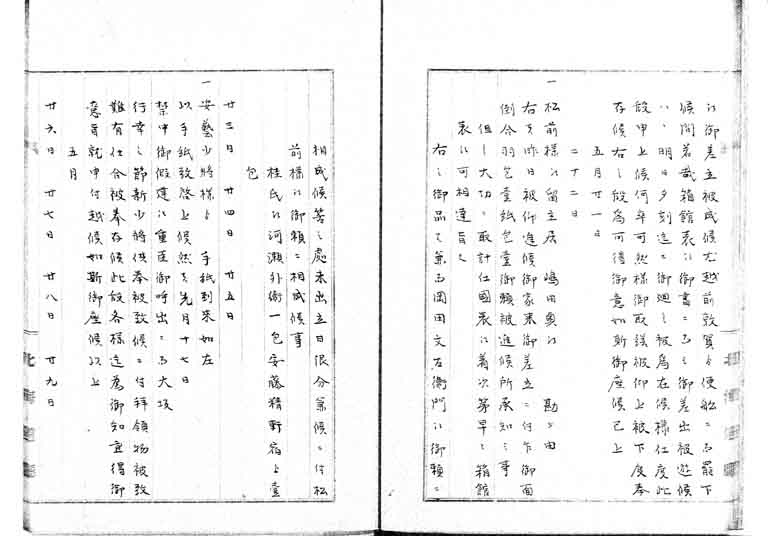 江御差立被成候尤越前敦賀ゟ便船ニ而罷下
候間若哉箱館表江御書ニ而も御差出被遊候
ハヽ明日夕刻迄ニ御廻し被為在候様仕度此
段申上候何卒可然様御取談被仰上被下度奉
存候右之段為可得御意如斯御座候已上
五月廿一日
二十二日
一松前様江留主居 嶋田興江 勘ニ田
右者昨日被仰進候御家来御差立ニ付乍御面
倒合羽包壹紙包壹御頼被進候所承知之事
但し大切ニ取計仕国表江着次第早々箱館
表江可相達旨也
右之御品者兼而岡田文右衛門江御頼ニ
相成候筈之處未出立日限分兼候ニ付松
前様江御頼ニ相成候事
桂氏江河瀬外衛一包安藤精軒宿ゟ壹
包
廿三日 廿四日 廿五日
一安藝少将様ゟ 手紙到来如左
以手紙致啓上候然者先月十七日
禁中御假建江重臣御呼出ニ而大坂
行幸之節新少将供奉被致候ニ付拝領物被致
難有仕合被奉存候此段各様迄為御知宜得御
意旨就申付越候如斯御座候以上
五月
廿六日 廿七日 廿八日 廿九日